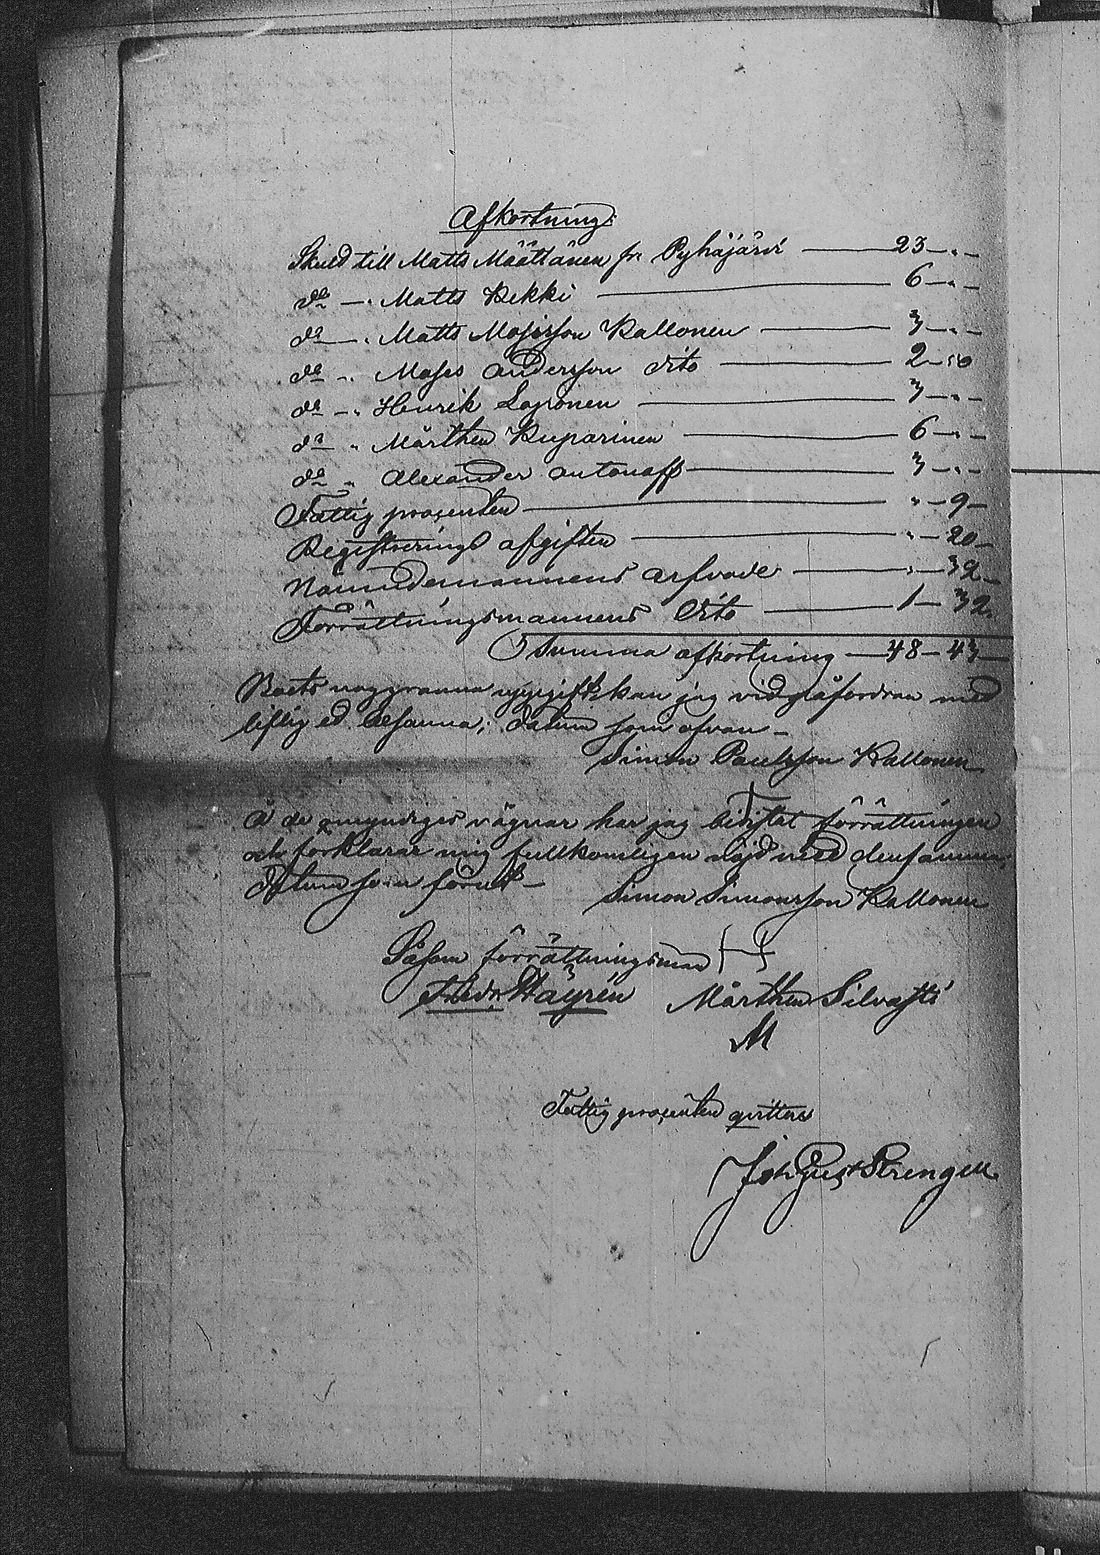 Afkortning:
Skuld till Matts Määttänen fr. Pyhäjärvi — 23 — „ —
do — „ Matts Kekki — 6 — „ —
do — „ Matts Mosisson Kallonen — 3 — „ —
do — „ Moses Andersson dito — 2 — 50
do — „ Henrik Loponen — 3 — „ —
do „ Mårthen Kuparinen — 6 — „ —
do „ Alexander Antonoff — 3 — „ —
Fattig procenten — „ — 9 —
Registrerings afgiften — „ — 20 —
Nämndemannens arfvode — „ — 32 —
Förrättningsmannens dito — 1 — 32
Summa afkortning — 48 — 43 —
Boets noggranna uppgift kan jag vid påfordran med
liflig ed besanna; datum som ofvan —
Simon Paulsson Kallonen
Å de omyndiges vägnar har jag bivistat förrättningen
och förklarar mig fullkomligen nöjd med densamma,
datum som förut —
Simon Simonsson Kallonen
Såsom förrättningsman
Fredr Häyrén Mårthen Silvasti
M
Fattig procenten qvitteras
Joh Gust Strengell